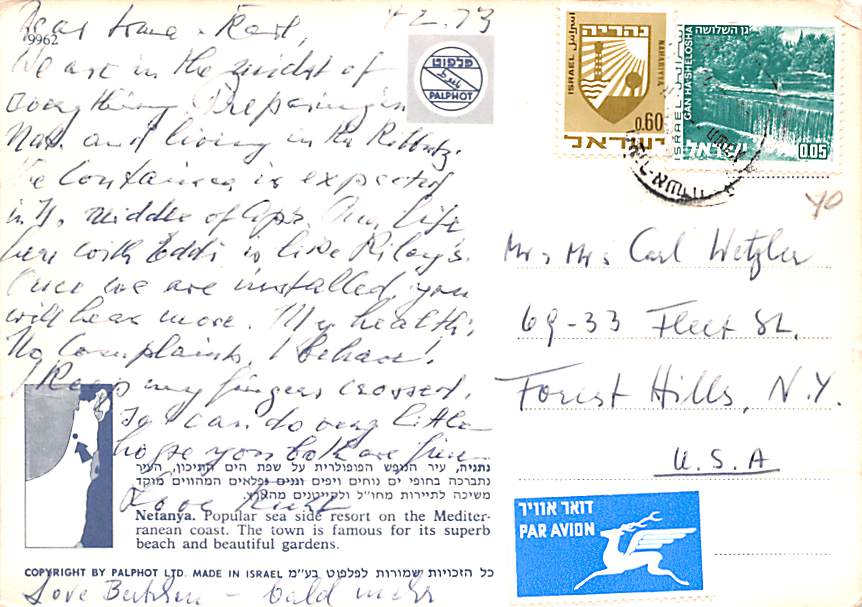 Dear Irma + Karl,
4 2. 73
9962
We are in the midst of
everything. Preparing in
Nah. and living in the Kibbutz.
The Container is expected
in the middle of Apr. Our life
here with Eddi is like Riley's.
Once we are installed, you
will hear more. My health:
No complaints, I behave!
I keep my fingers crossed.
can do very little
hope you both are fine
Love Kurt
Love
bald mehr
פלפוט
PALPHOT
נהריה
NAHARIYYA
ISRAEL
0.60
ישראל
גן השלושה
GAN HASHELOSHA
ISRAEL
ישראל
0.05
40
Mr + Mrs Carl Wetzler
69-33 Fleet St.
Forest Hills, N.Y.
U.S.A
נתניה, עיר הנופש הפופולרית על שפת הים התיכון, העיר
נתברכה בחופי ים נוחים ויפים וגנים נפלאים המהווים מוקד
משיכה לתיירות מחו״ל ולקייטנים מהארץ.
Netanya. Popular sea side resort on the Mediter-
ranean coast. The town is famous for its superb
beach and beautiful gardens.
COPYRIGHT BY PALPHOT LTD. MADE IN ISRAEL כל הזכויות שמורות לפלפוט בע״מ
דואר אוויר
PAR AVION